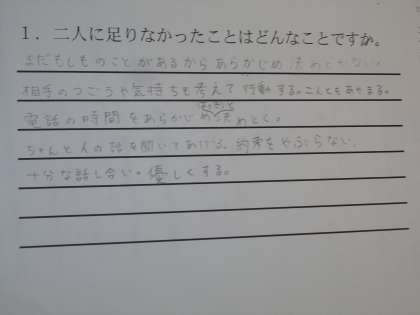 1. 二人に足りなかったことはどんなことですか。
まだもしものことがあるからあらかじめ決めとかない。
相手のつごうや気持ちも考えて行動する。こんどもあやまる。
電話の時間をあらかじめ決めとく。
ちゃんと人の話を聞いてあげる。約束をやぶらない。
十分な話し合い。優しくする。